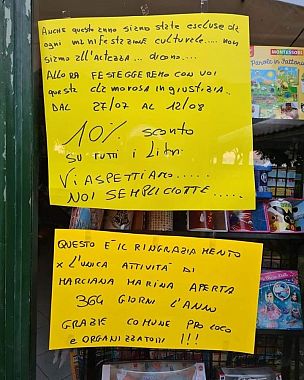 ANCHE questo ANNO siamo state escluse da
ogni manifestazione culturale.... non
siamo all'altezza... dicono....
Allora FESTEGGEREMO CON VOI
questa clamorosa ingiustizia.
DAL 27/07 AL 12/08
10% sconto
su tutti i Libri
Vi ASPETTIAMO.....
NOI SEMPLICIOTTE.....
QUESTO È IL RINGRAZIAMENTO
x L'UNICA ATTIVITÀ DI
MARCIANA MARINA APERTA
364 GIORNI L'ANNO
GRAZIE COMUNE PRO LOCO
e ORGANIZZATORI !!!
MONTESSORI
Parole in Fattoria